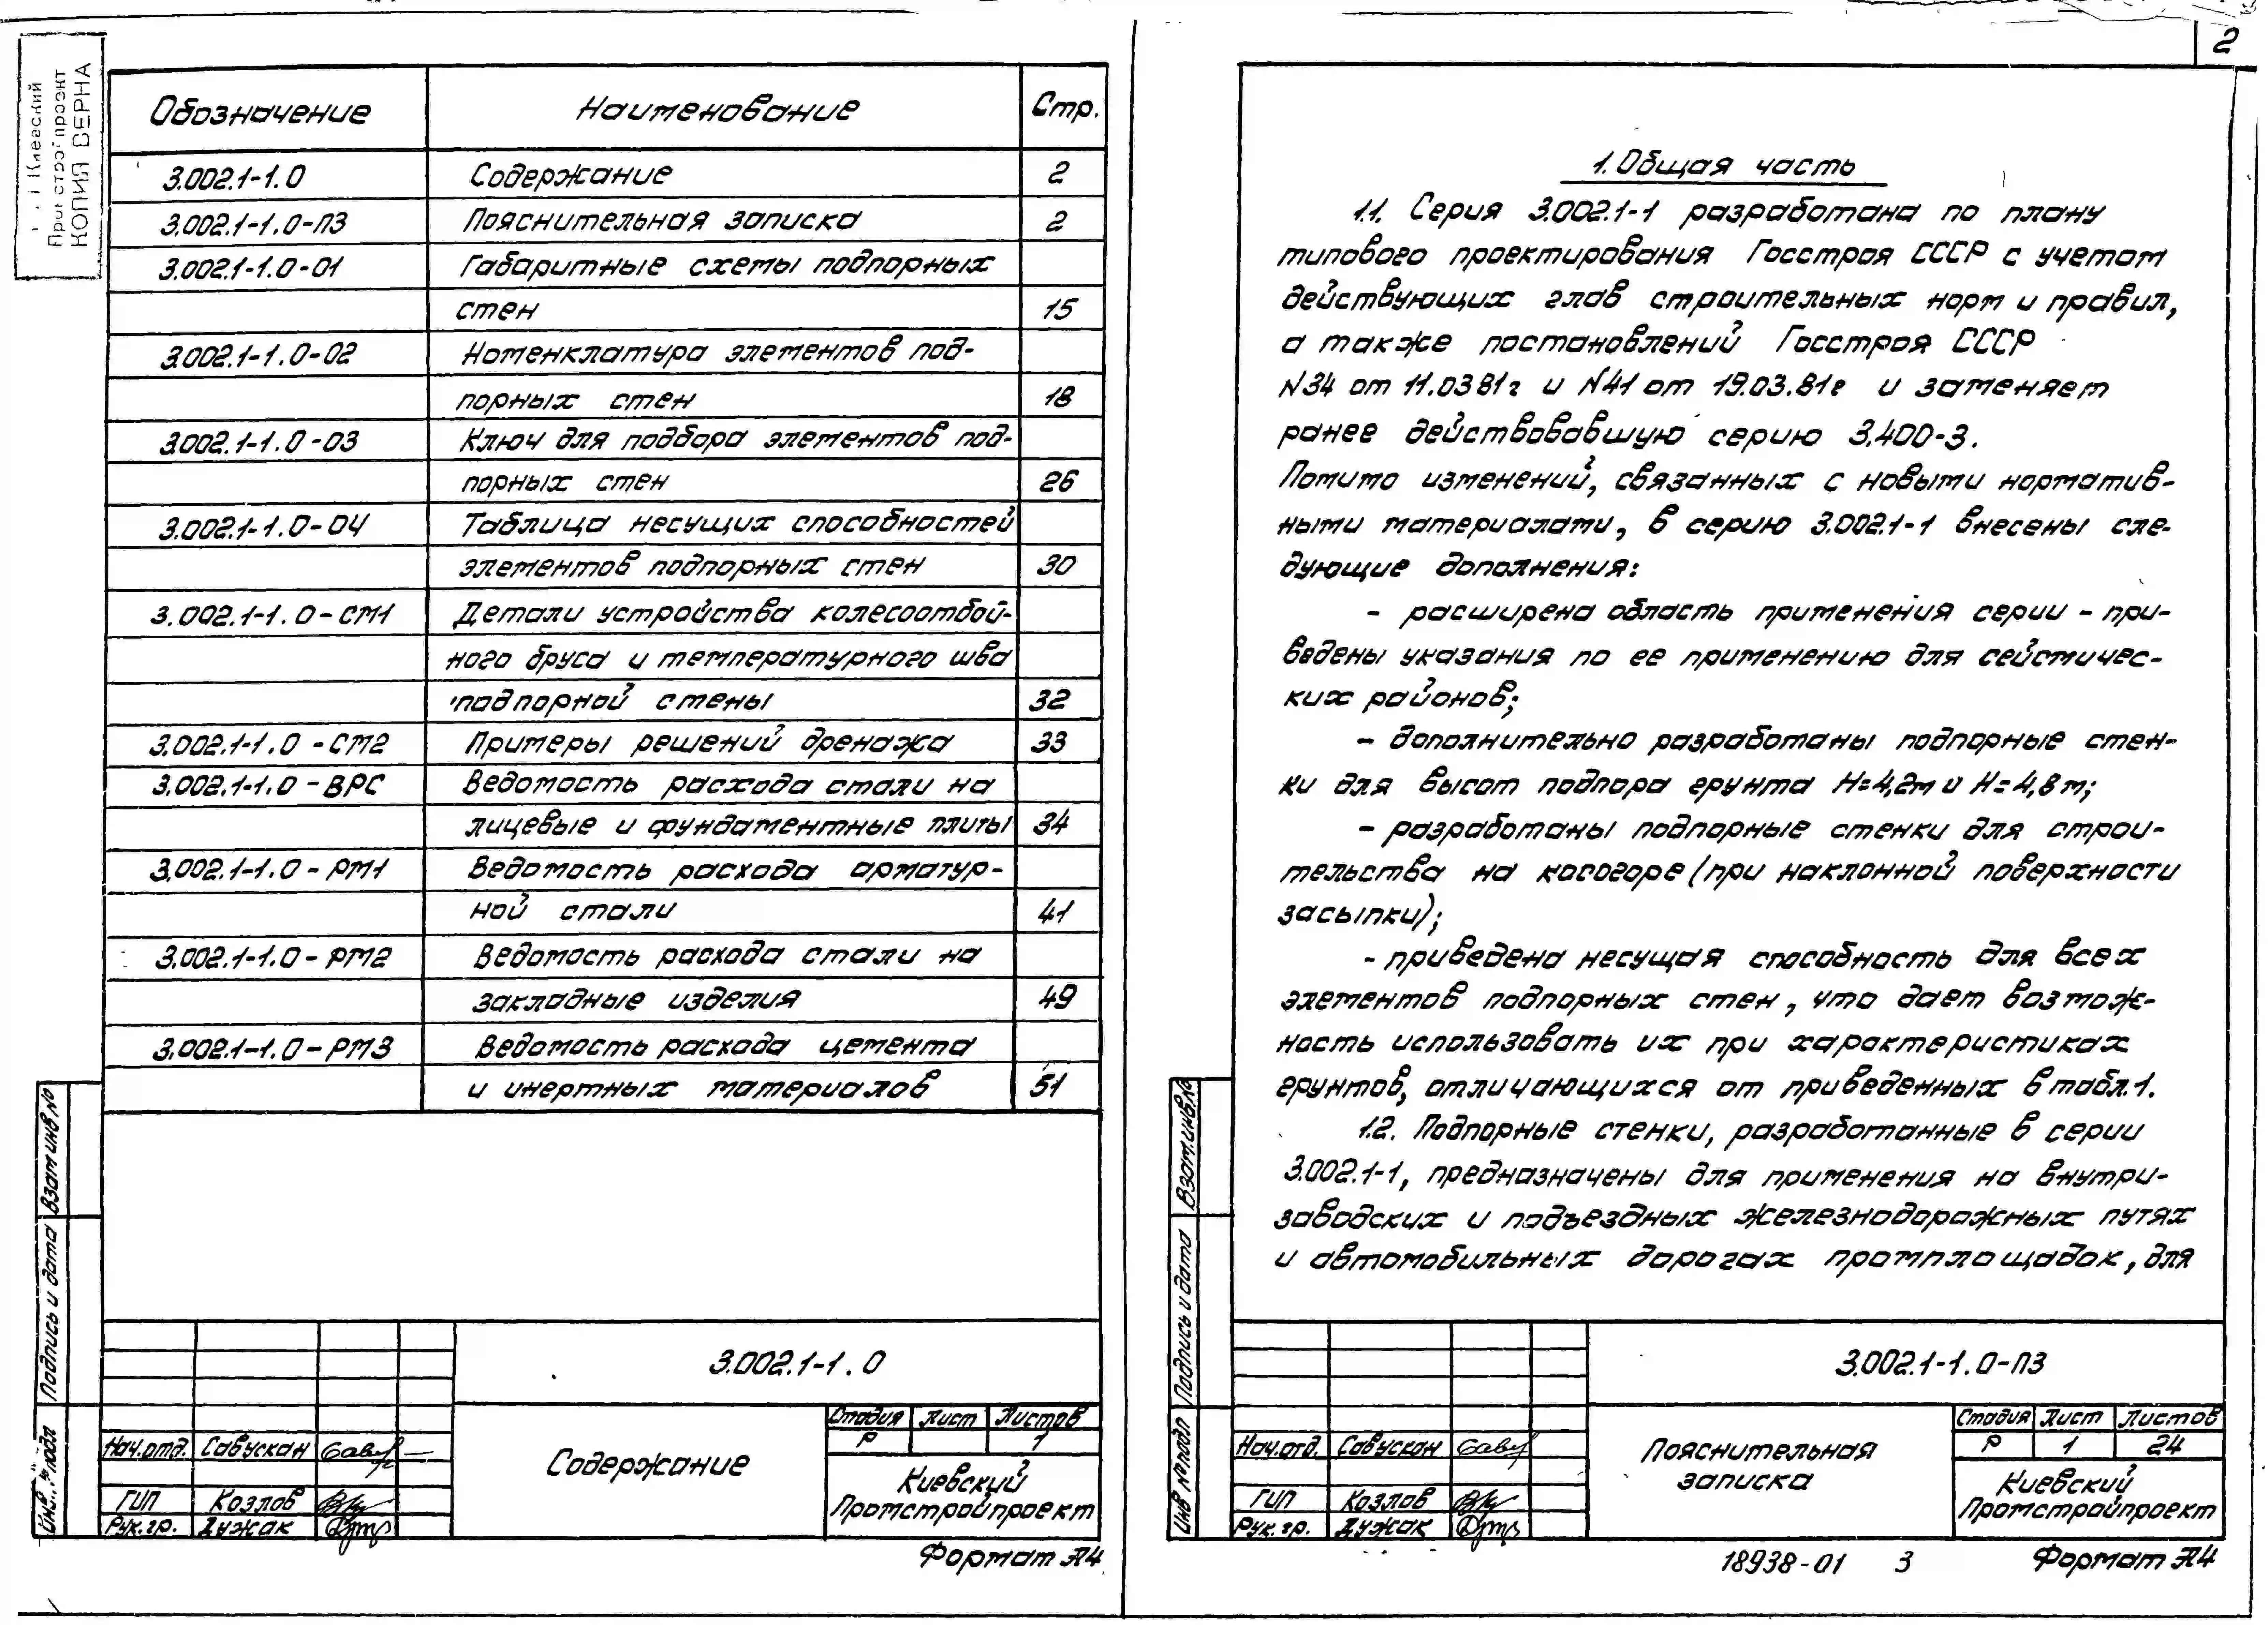 Киевский
Промстройпроект
КОПИЯ ВЕРНА
Обозначение Наименование Стр.
3.002.1-1.0 Содержание 2
3.002.1-1.0-ПЗ Пояснительная записка 2
3.002.1-1.0-01 Габаритные схемы подпорных
стен 15
3.002.1-1.0-02 Номенклатура элементов под-
порных стен 18
3.002.1-1.0-03 Ключ для подбора элементов под-
порных стен 26
3.002.1-1.0-04 Таблица несущих способностей
элементов подпорных стен 30
3.002.1-1.0-СМ1 Детали устройства колесоотбой-
ного бруса и температурного шва
подпорной стены 32
3.002.1-1.0-СМ2 Примеры решений дренажа 33
3.002.1-1.0-ВРС Ведомость расхода стали на
лицевые и фундаментные плиты 34
3.002.1-1.0-РМ1 Ведомость расхода арматур-
ной стали 41
3.002.1-1.0-РМ2 Ведомость расхода стали на
закладные изделия 49
3.002.1-1.0-РМ3 Ведомость расхода цемента
и инертных материалов 51
Взам инв №
Подпись и дата
Инв. № подл
3.002.1-1.0
Стадия Лист Листов
Р 1
Нач.отд. Савускан
ГИП Козлов
Рук.гр. Дужак
Содержание
Киевский
Промстройпроект
Формат А4
2
1. Общая часть
1.1. Серия 3.002.1-1 разработана по плану
типового проектирования Госстроя СССР с учетом
действующих глав строительных норм и правил,
а также постановлений Госстроя СССР
№34 от 11.0381г и №41 от 19.03.81г и заменяет
ранее действовавшую серию 3.400-3.
Помимо изменений, связанных с новыми норматив-
ными материалами, в серию 3.002.1-1 внесены сле-
дующие дополнения:
- расширена область применения серии - при-
ведены указания по ее применению для сейсмичес-
ких районов;
- дополнительно разработаны подпорные стен-
ки для высот подпора грунта Н=4,2м и Н=4,8м;
- разработаны подпорные стенки для строи-
тельства на косогоре (при наклонной поверхности
засыпки);
- приведена несущая способность для всех
элементов подпорных стен, что дает возмож-
ность использовать их при характеристиках
грунтов, отличающихся от приведенных в табл.1.
1.2. Подпорные стенки, разработанные в серии
3.002.1-1, предназначены для применения на внутри-
заводских и подъездных железнодорожных путях
и автомобильных дорогах промплощадок, для
Взам.инв.№
Подпись и дата
Инв № подл
3.002.1-1.0-ПЗ
Стадия Лист Листов
Р 1 24
Нач.отд. Савускан
ГИП Козлов
Рук.гр. Дужак
Пояснительная
записка
Киевский
Промстройпроект
18938-01 3 Формат А4